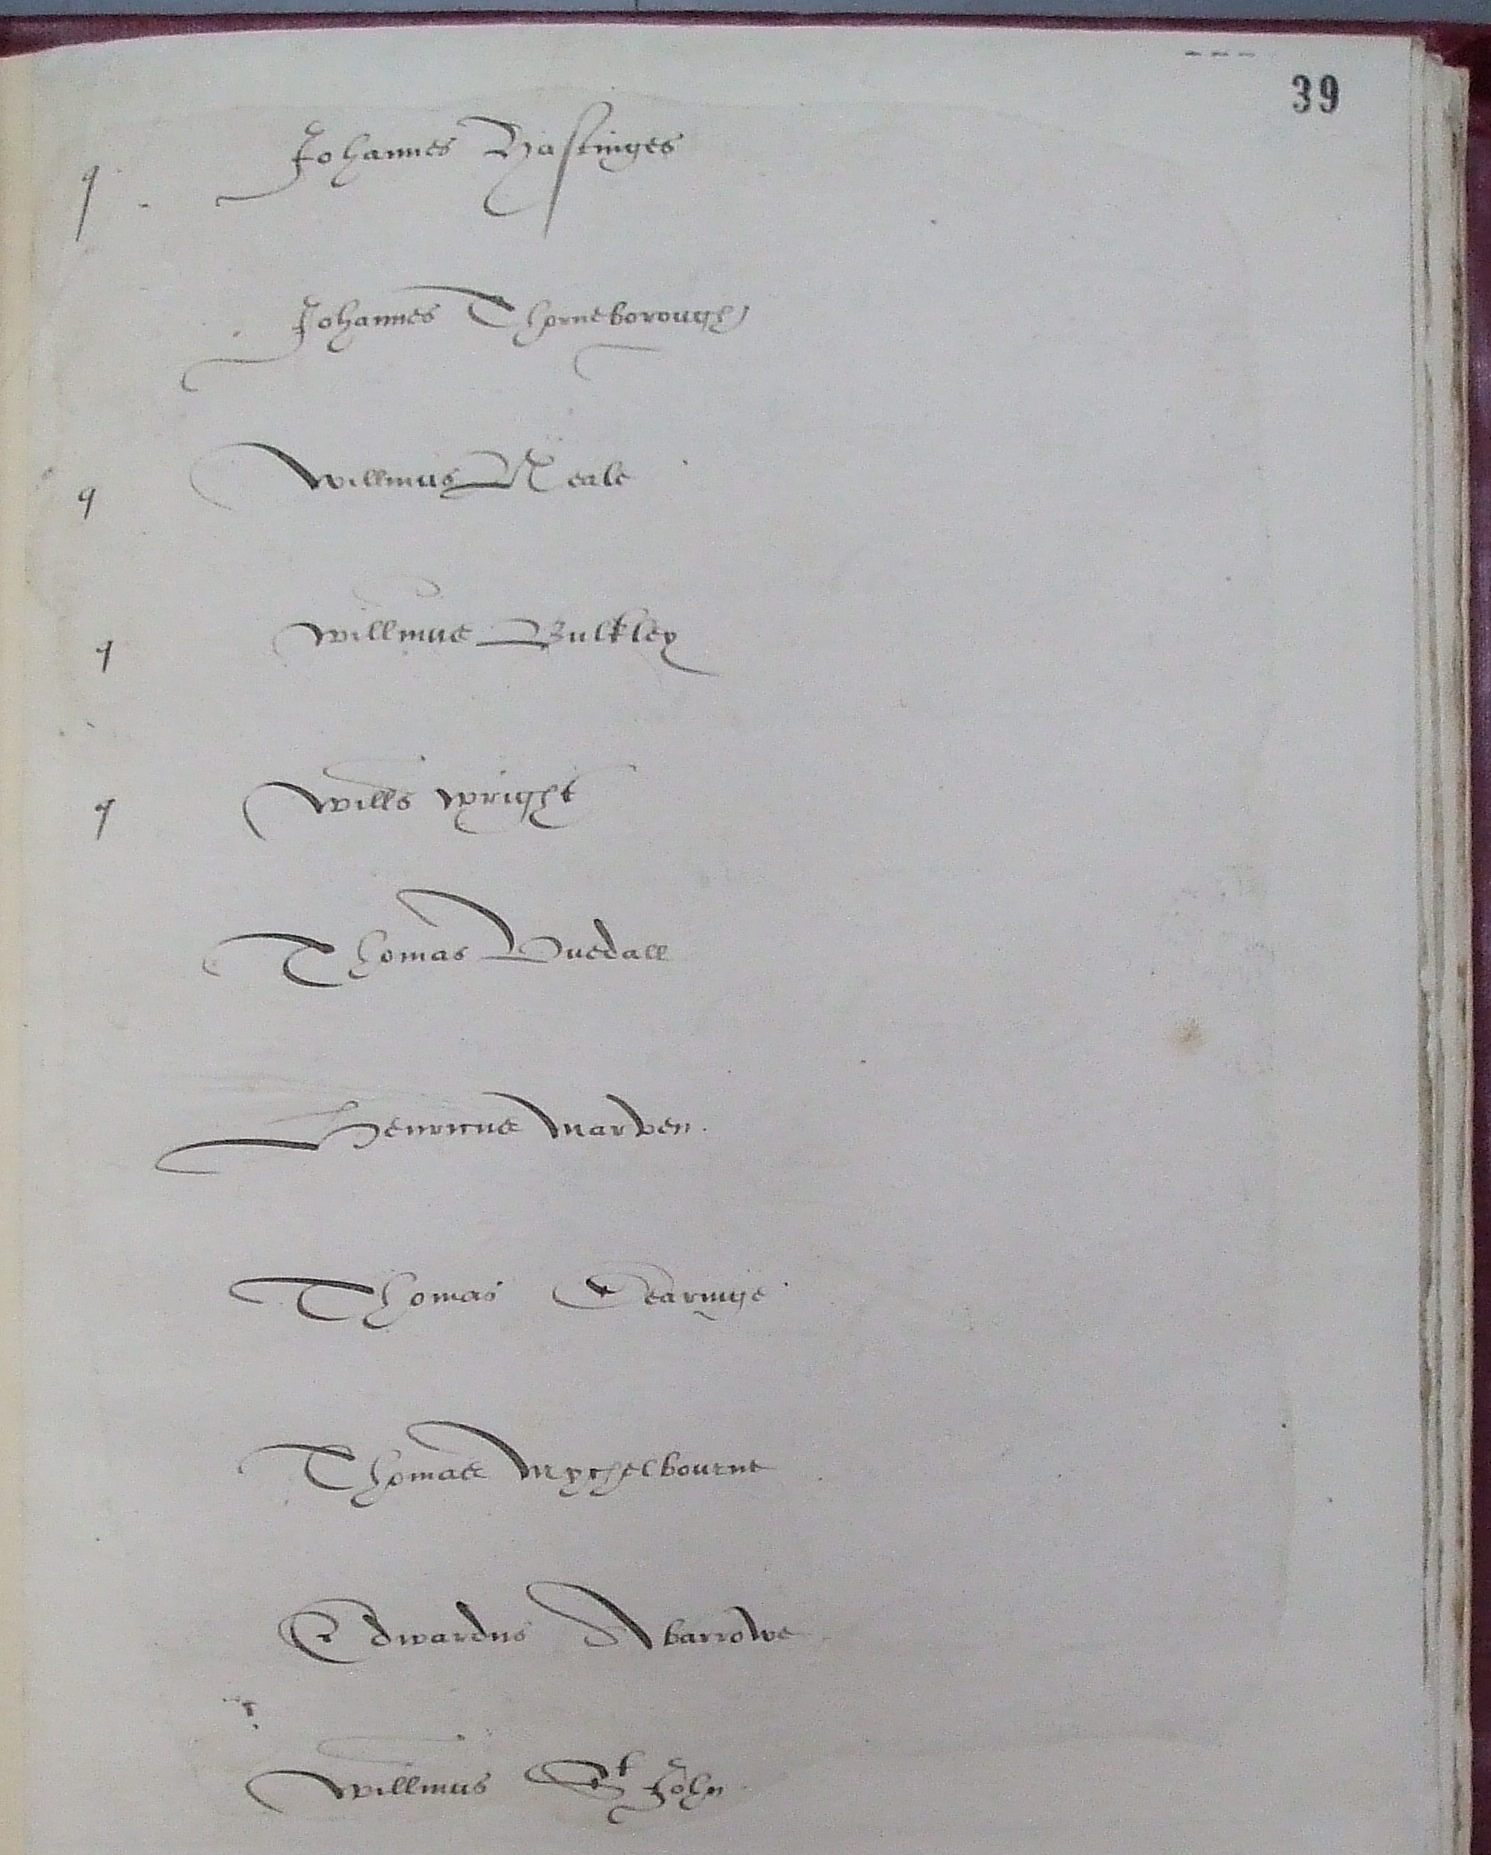 39
q Johannes Hastinges
Johannes Thorneborough
q Willmus Neale
q Willmus Bulkley
q Willus Wright
Thomas Uuedall
Henricus Marven.
Thomas
Thomas Mychelbourne
Edwardus Abarrowe
Willmus St John